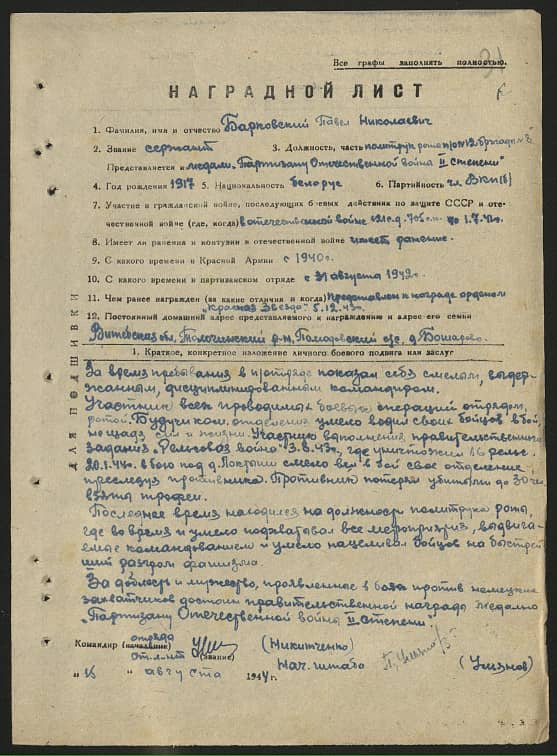 Все графы заполнять полностью.
НАГРАДНОЙ ЛИСТ
1. Фамилия, имя и отчество Барковский Павел Николаевич
2. Звание сержант 3. Должность, часть политрук роты
Представляется к медали "Партизану Отечественной война II степени"
4. Год рождения 1917 5. Национальность белорус 6. Партийность чл. ВКП(б)
7. Участие в гражданской войне, последующих боевых действиях по защите СССР и оте-
чественной войне (где, когда) в отечественной войне по 1.7.44г.
8. Имеет ли ранения и контузии в отечественной войне имеет ранение.
9. С какого времени в Красной Армии с 1940г.
10. С какого времени в партизанском отряде с 31 августа 1942г.
11. Чем ранее награжден (за какие отличия и когда) Представлен к награде орденом
"Красная Звезда" 5.12.43г.
12. Постоянный домашний адрес представляемого к награждению и адрес его семьи
Витебская обл. Толочинский р-н, с/с, д.
ДЛЯ ПОДШИВКИ
1. Краткое, конкретное изложение личного боевого подвига или заслуг
За время пребывания в отряде показал себя смелым, выдер-
жанным, дисциплинированным командиром.
Участник всех проводимых боевых операций отрядом,
ротой. Будучи ком. отделения умело водил своих бойцов в бой,
не щадя сил и жизни. Участник выполнения правительственного
задания "Рельсовая война" 3.8.43г, где уничтожил 16 рельс.
20.1.44г. в бою под д. смело вел в бой свое отделение
преследуя противника. Противник потерял убитыми до 30 чел
взяты трофеи.
Последнее время находился на должности политрука роты,
где во время и умело подхватывал все мероприятия, выдвига-
емые командованием и умело нацеливал бойцов на быстрей
ший разгром фашизма.
За доблесть и мужество, проявленные в боях против немецких
захватчиков достоин правительственной награды медалью
"Партизану Отечественной война II степени".
отряда
Командир (начальник) (Никитченко)
ст. л-нт (звание) Нач. штаба
"15" августа 1944 г.